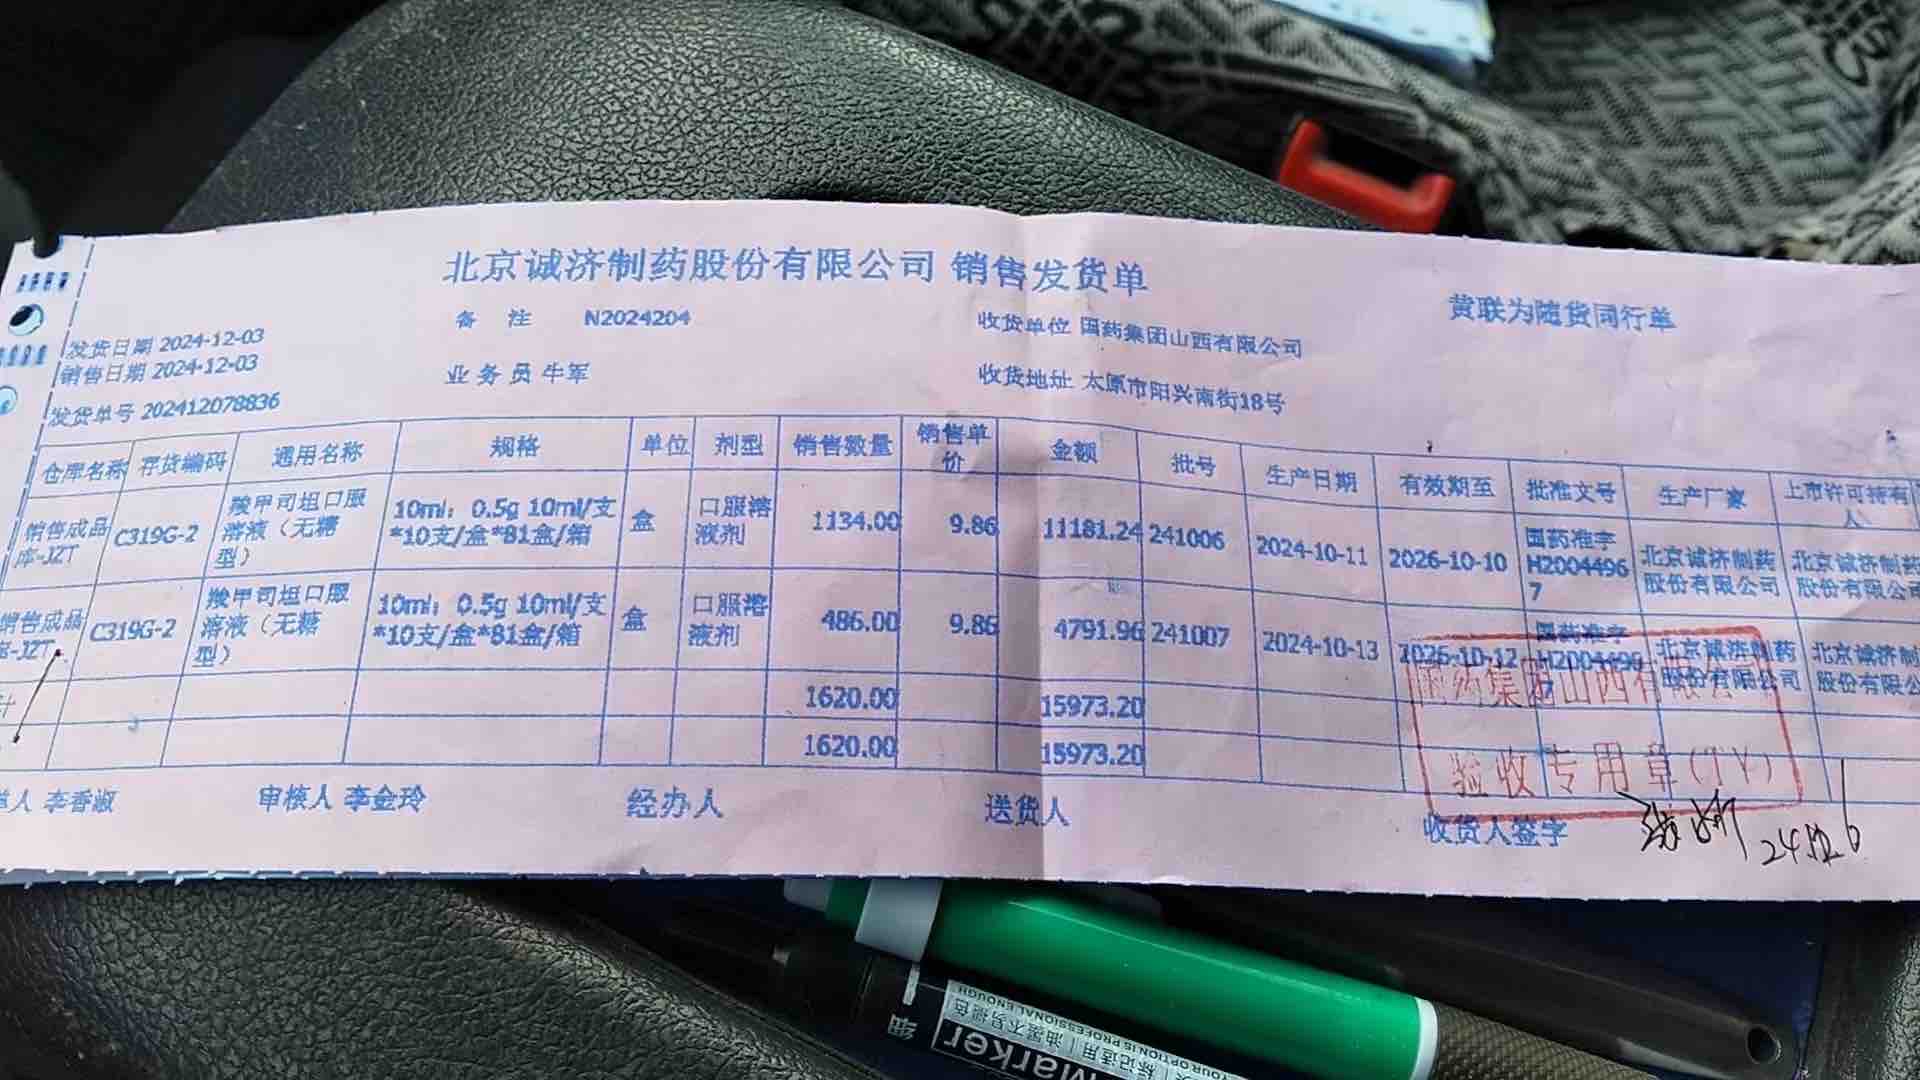 北京诚济制药股份有限公司 销售发货单
黄联为随货同行单
发货日期 2024-12-03
备 注 N2024204
收货单位 国药集团山西有限公司
销售日期 2024-12-03
业务员 牛军
收货地址 太原市阳兴南街18号
发货单号 202412078836
仓库名称 存货编码 通用名称 规格 单位 剂型 销售数量 销售单价 金额 批号 生产日期 有效期至 批准文号 生产厂家 上市许可持有人
销售成品库-JZT C319G-2 羧甲司坦口服溶液（无糖型） 10ml：0.5g 10ml/支*10支/盒*81盒/箱 盒 口服溶液剂 1134.00 9.86 11181.24 241006 2024-10-11 2026-10-10 国药准字H20044967 北京诚济制药股份有限公司 北京诚济制药股份有限公司
销售成品库-JZT C319G-2 羧甲司坦口服溶液（无糖型） 10ml：0.5g 10ml/支*10支/盒*81盒/箱 盒 口服溶液剂 486.00 9.86 4791.96 241007 2024-10-13 2026-10-12 国药准字H2004496 北京诚济制药股份有限公司 北京诚济制药股份有限公
计 1620.00 15973.20
1620.00 15973.20
国药集团山西有限公司
验收专用章(TY)
单人 李香淑 审核人 李金玲 经办人 送货人 收货人签字
24.12.6
细
Marker
标记适用 | 油墨不易褪色
YOUR OPTION IS PROFESSIONAL ENOUGH